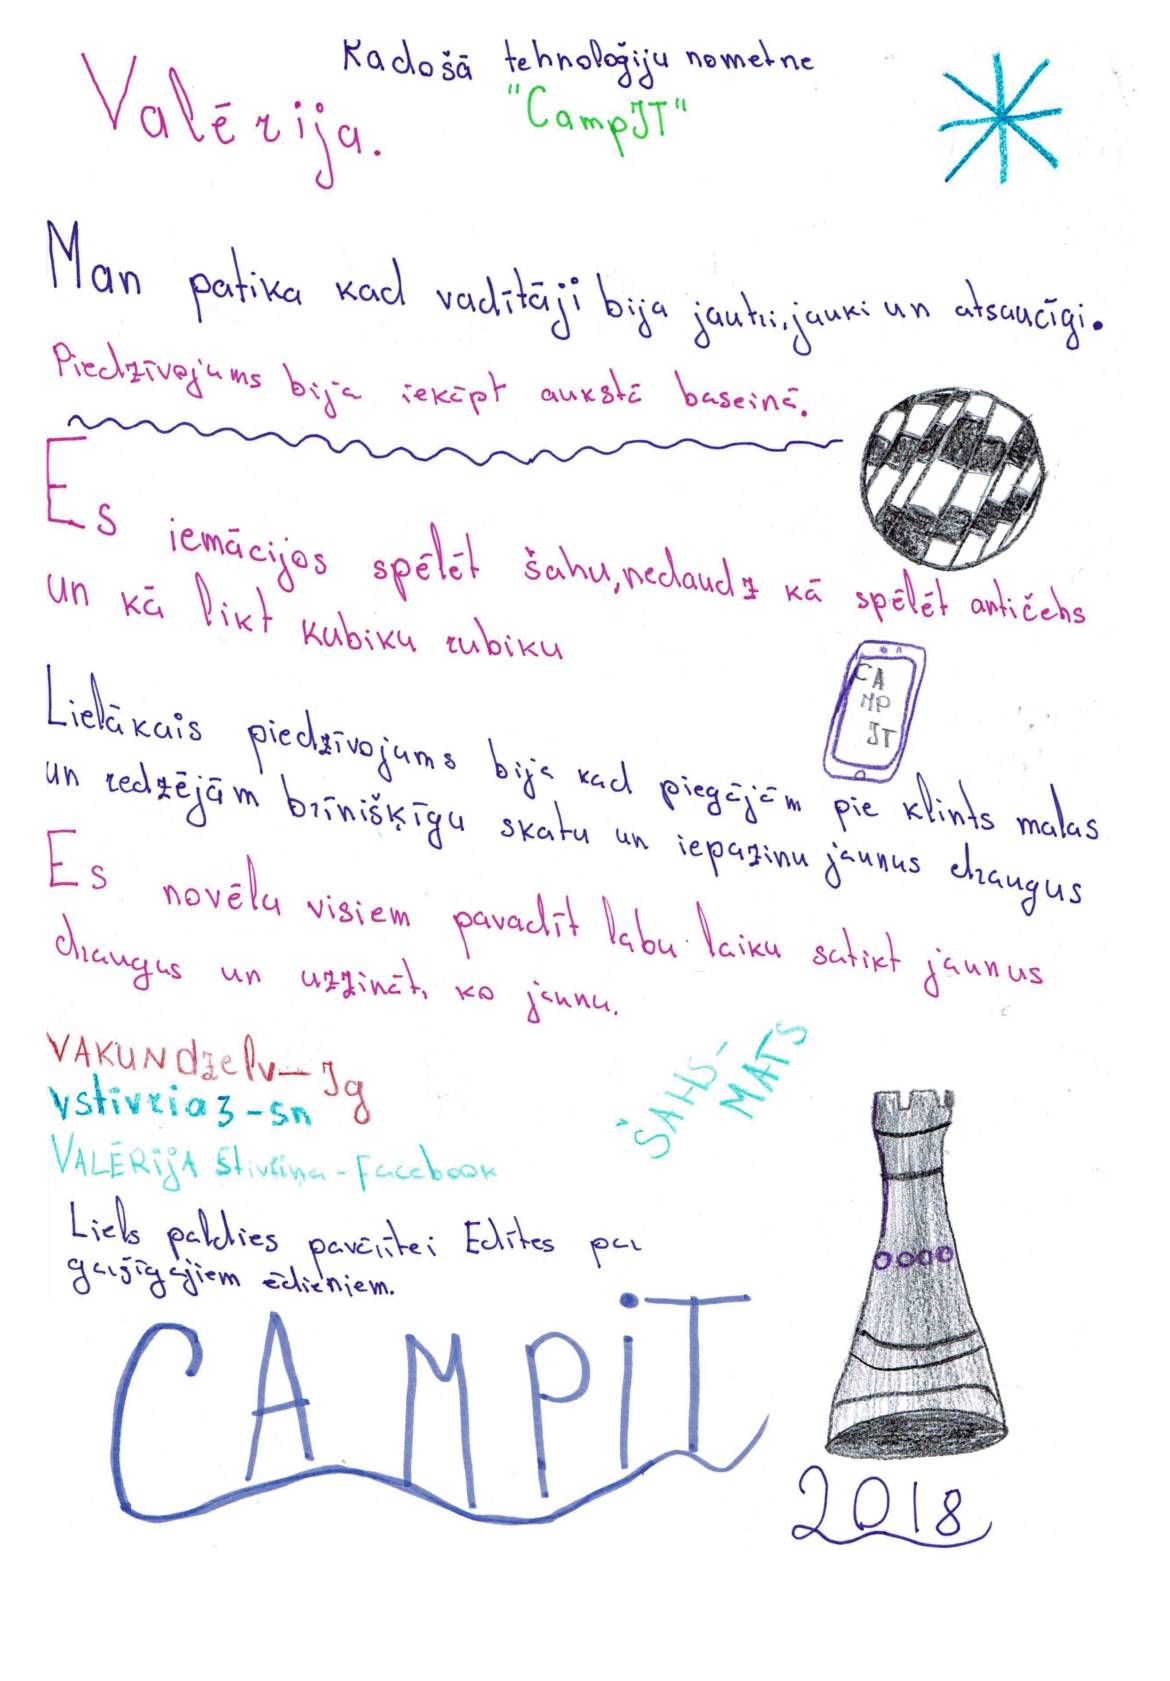 Radošā tehnoloģiju nometne
"CampIT"
Valērija.
Man patika kad vadītāji bija jautri, jauki un atsaucīgi.
Piedzīvojums bija iekāpt aukstā baseinā.
Es iemācijos spēlēt šahu, nedaudz kā spēlēt antičehs
un kā likt kubiku rubiku
CA
MP
IT
Lielākais piedzīvojums bija kad piegājām pie klints malas
un redzējām brīnišķīgu skatu un iepazinu jaunus draugus
Es novēlu visiem pavadīt labu laiku satikt jaunus
draugus un uzzināt, ko jaunu.
VAKUNdzelv-Ig
vstivria3-sn
VALĒRiJA Stivriņa-Facebook
ŠAHS-
MATS
Liels paldies pavārītei Edītes par
garšīgajiem ēdieniem.
CAMPiT
2018